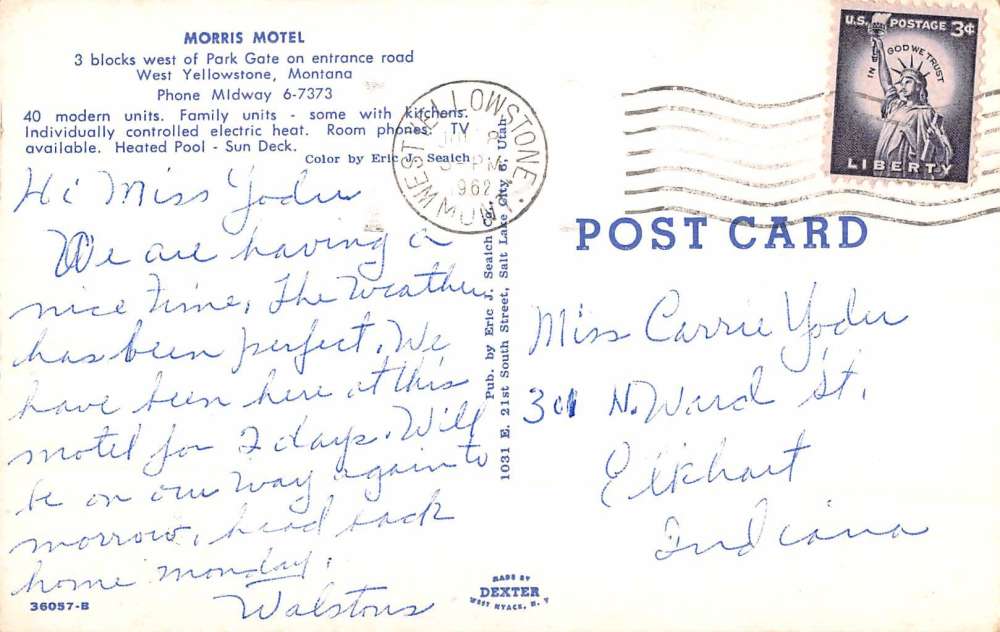 MORRIS MOTEL
3 blocks west of Park Gate on entrance road
West Yellowstone, Montana
Phone MIdway 6-7373
40 modern units. Family units - some with kitchens.
Individually controlled electric heat. Room phones. TV
available. Heated Pool - Sun Deck.
Color by Eric J. Seaich
Hi Miss Yoder
We are having a
nice time. The Weather
has been perfect. We
have been here at this
motel for 2 days. Will
be on our way again to
morrow, head back
home monday.
Walstons
36057-B
Pub. by Eric J. Seaich Co.,
1031 E. 21st South Street, Salt Lake City 6, Utah
MADE BY
DEXTER
WEST NYACK, N. Y.
WEST YELLOWSTONE
PM
1962
U.S. POSTAGE 3¢
IN GOD WE TRUST
LIBERTY
POST CARD
Miss Carrie Yoder
N. Ward St.
Elkhart
Indiana